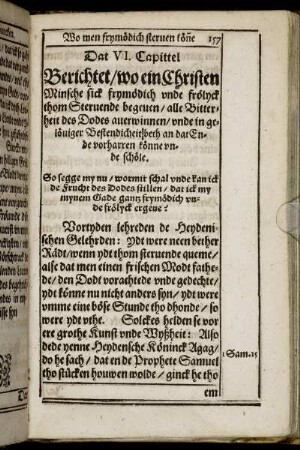 Wo men frymödich steruen köñe
157
Dat VI. Capittel
Berichtet/wo ein Christen
Minsche sick frymödich vnde frölyck
thom Steruende begeuen/alle Bitter-
heit des Dodes auerwinnen/vnde in ge-
löuiger Bestendicheit/beth an dat En-
de vorharren könne vn-
de schöle.
So segge my nu/wormit schal vnde kan ick
de Frucht des Dodes stillen/dat ick my
mynem Gade gantz frymödich vn-
de frölyck ergeue?
Vortyden lehreden de Heydeni-
schen Gelehrden: Ydt were neen bether
Rädt/wenn ydt thom steruende queme/
alse dat men einen frischen Modt fathe-
de/den Dodt vorachtede vnde gedechte/
ydt könne nu nicht anders syn/ydt were
vmme eine böse Stunde tho dhonde/so
were ydt vthe. Solckes helden se vor
ere grothe Kunst vnde Wyßheit: Also
dede yenne Heydensche Köninck Agag/
do he sach/dat en de Prophete Samuel
tho stücken houwen wolde/ginck he tho
1 Sam. 15
em